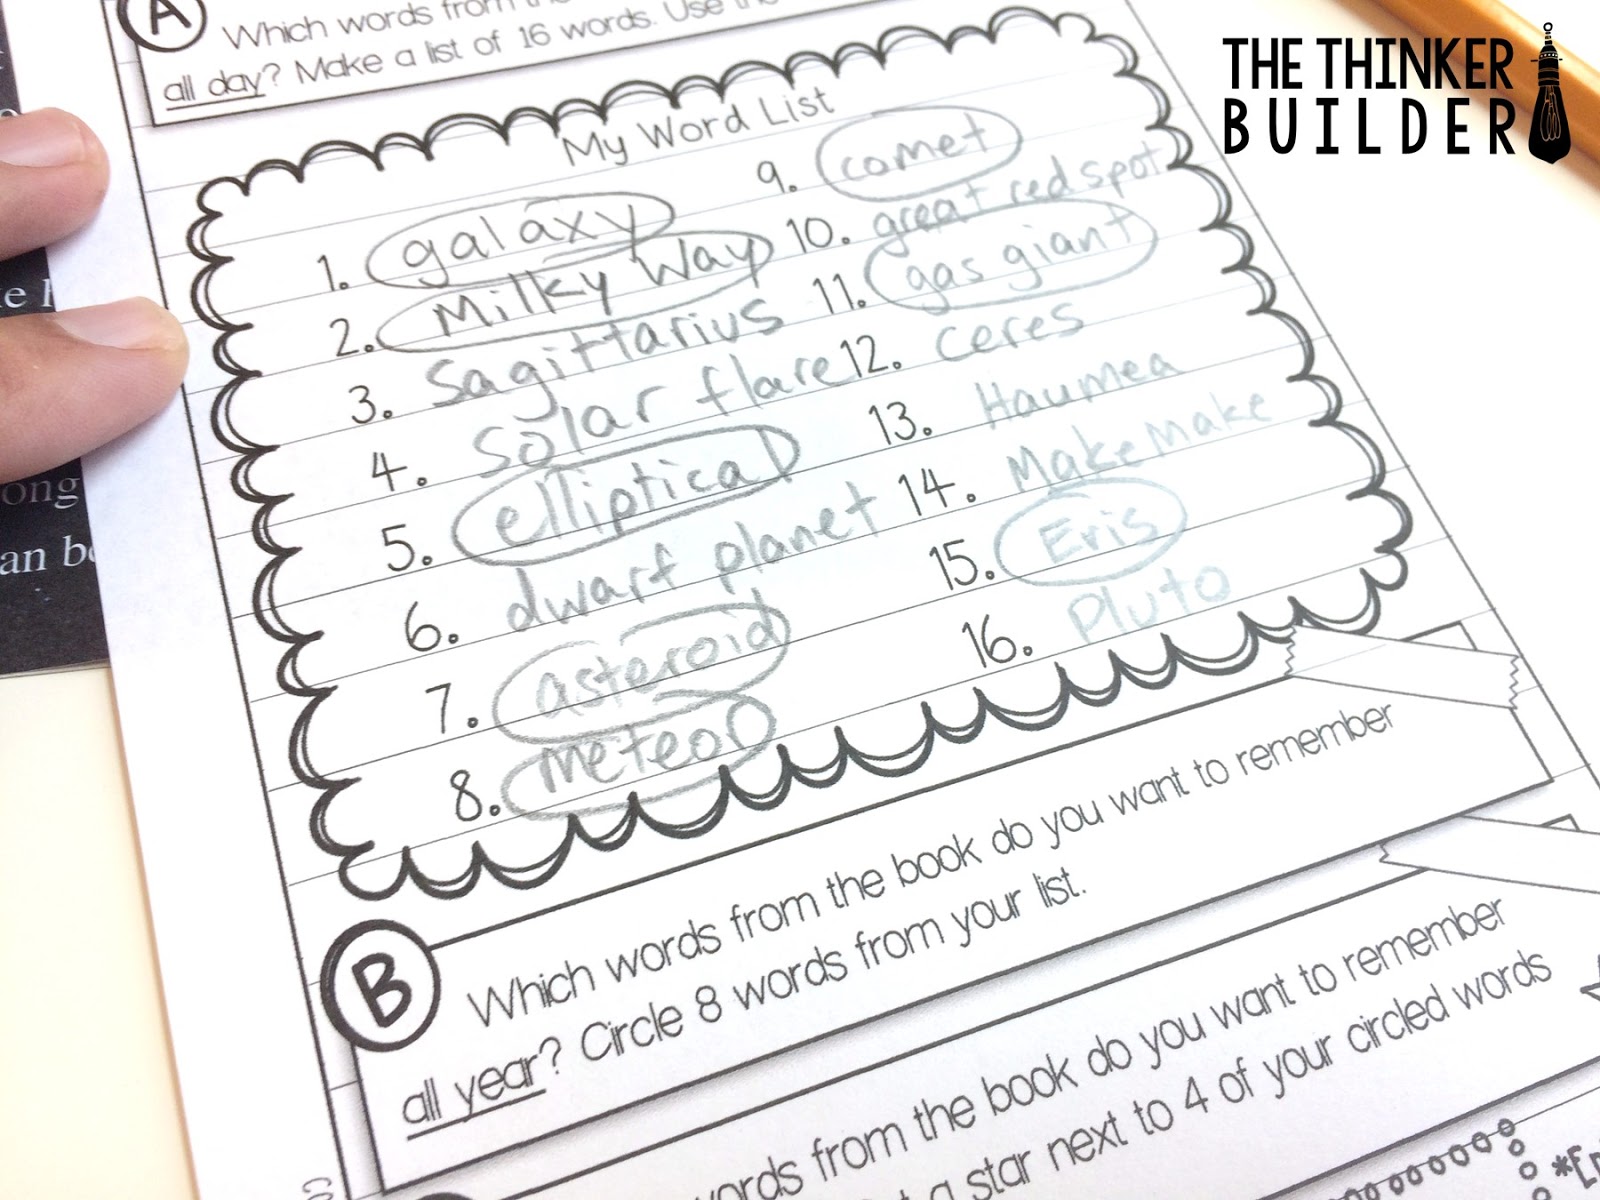 A
Which words from the
all day? Make a list of 16 words. Use the
THE THINKER
BUILDER
My Word List
1. galaxy
2. Milky Way
3. Sagittarius
4. solar flare
5. elliptical
6. dwarf planet
7. asteroid
8. meteor
9. comet
10. great red spot
11. gas giant
12. ceres
13. Haumea
14. MakeMake
15. Eris
16. Pluto
ong
an be
B
Which words from the book do you want to remember
all year? Circle 8 words from your list.
words from the book do you want to remember
a star next to 4 of your circled words